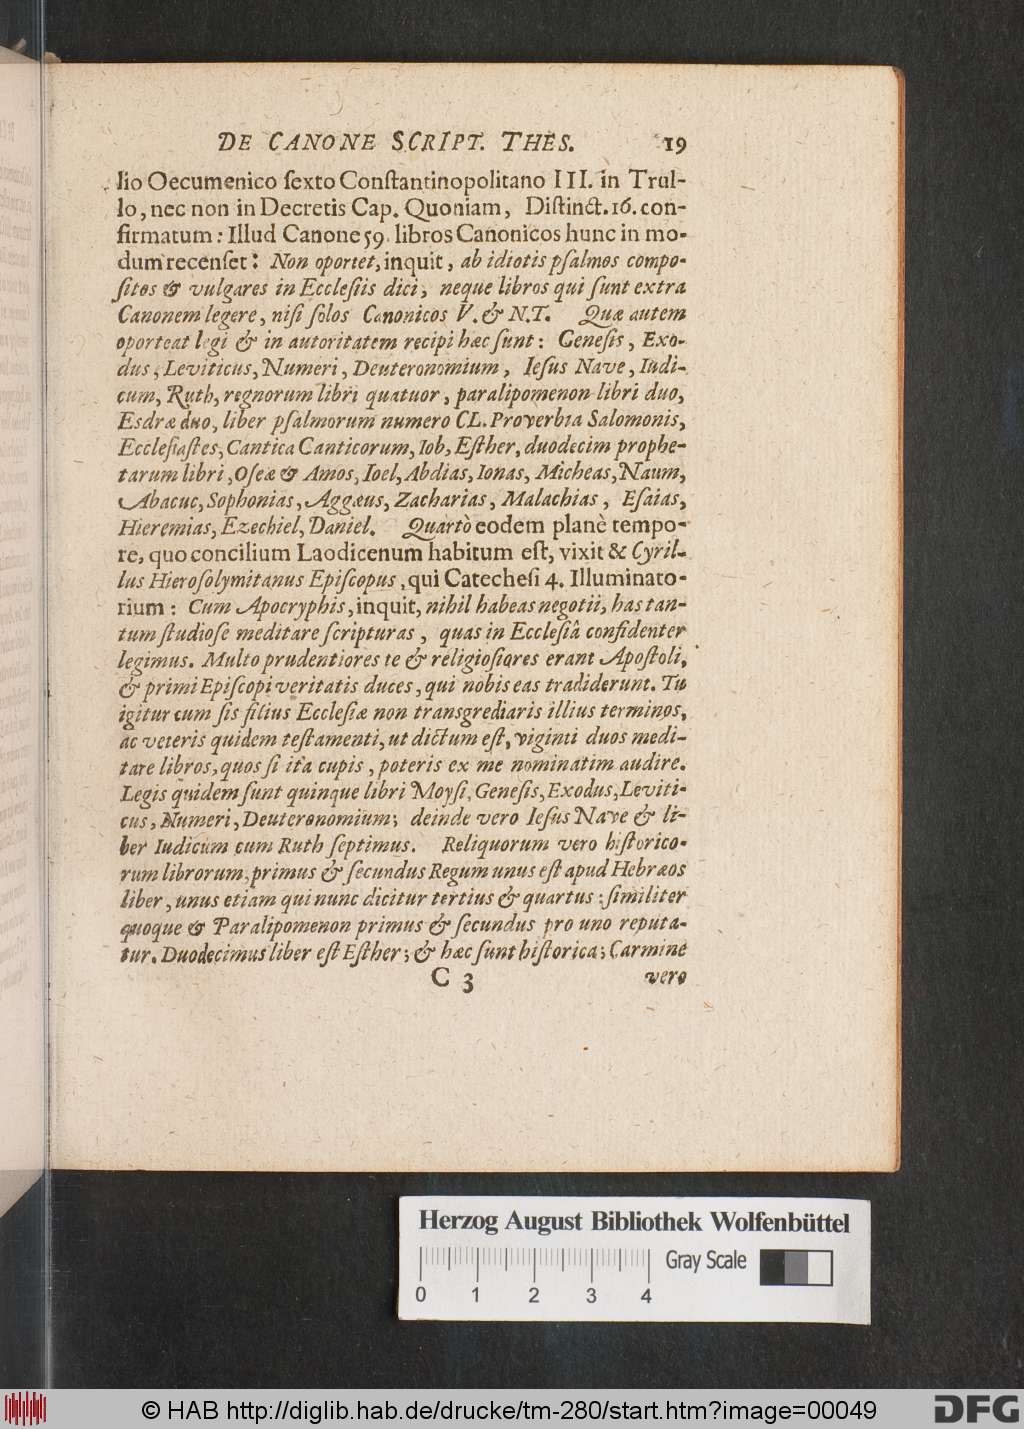 DE CANONE SCRIPT. THES. 19
lio Oecumenico ſexto Conſtantinopolitano III. in Trul-
lo, nec non in Decretis Cap. Quoniam, Diſtinct. 16. con-
firmatum: Illud Canone 59. libros Canonicos hunc in mo-
dum recenſet: Non oportet, inquit, ab idiotis pſalmos compo-
ſitos & vulgares in Eccleſiis dici, neque libros qui ſunt extra
Canonem legere, niſi ſolos Canonicos V. & N.T. Quæ autem
oporteat legi & in autoritatem recipi hæc ſunt: Geneſis, Exo-
dus, Leviticus, Numeri, Deuteronomium, Ieſus Nave, Iudi-
cum, Ruth, regnorum libri quatuor, paralipomenon libri duo,
Esdræ duo, liber pſalmorum numero CL. Proverbia Salomonis,
Eccleſiaſtes, Cantica Canticorum, Iob, Eſther, duodecim prophe-
tarum libri, Oſeæ & Amos, Ioel, Abdias, Ionas, Micheas, Naum,
Abacuc, Sophonias, Aggæus, Zacharias, Malachias, Eſaias,
Hieremias, Ezechiel, Daniel. Quartò eodem planè tempo-
re, quo concilium Laodicenum habitum eſt, vixit & Cyril-
lus Hieroſolymitanus Epiſcopus, qui Catecheſi 4. Illuminato-
rium: Cum Apocryphis, inquit, nihil habeas negotii, has tan-
tum ſtudioſe meditare ſcripturas, quas in Eccleſiâ confidenter
legimus. Multo prudentiores te & religioſiores erant Apoſtoli,
& primi Epiſcopi veritatis duces, qui nobis eas tradiderunt. Tu
igitur cum ſis filius Eccleſiæ non transgrediaris illius terminos,
ac veteris quidem teſtamenti, ut dictum eſt, viginti duos medi-
tare libros, quos ſi ita cupis, poteris ex me nominatim audire.
Legis quidem ſunt quinque libri Moyſi, Geneſis, Exodus, Leviti-
cus, Numeri, Deuteronomium; deinde vero Ieſus Nave & li-
ber Iudicum cum Ruth ſeptimus. Reliquorum vero hiſtorico-
rum librorum, primus & ſecundus Regum unus eſt apud Hebræos
liber, unus etiam qui nunc dicitur tertius & quartus: ſimiliter
quoque & Paralipomenon primus & ſecundus pro uno reputa-
tur. Duodecimus liber eſt Eſther; & hæc ſunt hiſtorica; Carmine
C 3 vero
Herzog August Bibliothek Wolfenbüttel
Gray Scale
0 1 2 3 4
© HAB http://diglib.hab.de/drucke/tm-280/start.htm?image=00049
DFG